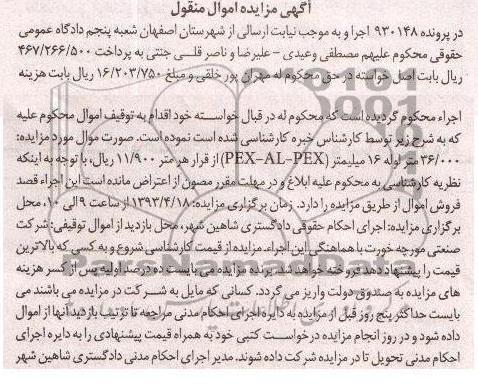 آگهی مزایده اموال منقول
در پرونده ۹۳۰۱۴۸ اجرا و به موجب نیابت ارسالی از شهرستان اصفهان شعبه پنجم دادگاه عمومی
حقوقی محکوم علیهم مصطفی وعیدی - علیرضا و ناصر قلی جنتی به پرداخت ۴۶۷/۲۶۶/۵۰۰
ریال بابت اصل خواسته در حق محکوم له مهران پور خلقی و مبلغ ۱۶/۲۰۳/۷۵۰ ریال بابت هزینه
اجراء محکوم گردیده است که محکوم له در قبال خواسته خود اقدام به توقیف اموال محکوم علیه
که به شرح زیر توسط کارشناس خبره کارشناسی شده است نموده است. صورت موال مورد مزایده:
۳۶/۰۰۰ متر لوله ۱۶ میلیمتر (PEX-AL-PEX) از قرار هر متر ۱۱/۹۰۰ ریال، با توجه به اینکه
نظریه کارشناسی به محکوم علیه ابلاغ و در مهلت مقرر مصون از اعتراض مانده است این اجراء قصد
فروش اموال از طریق مزایده را دارد. زمان برگزاری مزایده: ۱۳۹۳/۴/۱۸ از ساعت ۹ الی ۱۰، محل
برگزاری مزایده: اجرای احکام حقوقی دادگستری شاهین شهر، محل بازدید از اموال توقیفی: شرکت
صنعتی مورچه خورت با هماهنگی این اجراء. مزایده از قیمت کارشناسی شروع و به کسی که بالاترین
قیمت را پیشنهاد دهد فروخته خواهد شد. برنده مزایده می بایست ده درصد اولیه پس از کسر هزینه
های مزایده به صندوق دولت واریز می گردد. کسانی که مایل به شرکت در مزایده می باشند می
بایست حداکثر پنج روز قبل از مزایده به دایره اجرای احکام مدنی مراجعه تا ترتیب بازدید آنها از اموال
داده شود و در روز انجام مزایده درخواست کتبی خود به همراه قیمت پیشنهادی را به دایره اجرای
احکام مدنی تحویل تا در مزایده شرکت داده شوند. مدیر اجرای احکام مدنی دادگستری شاهین شهر